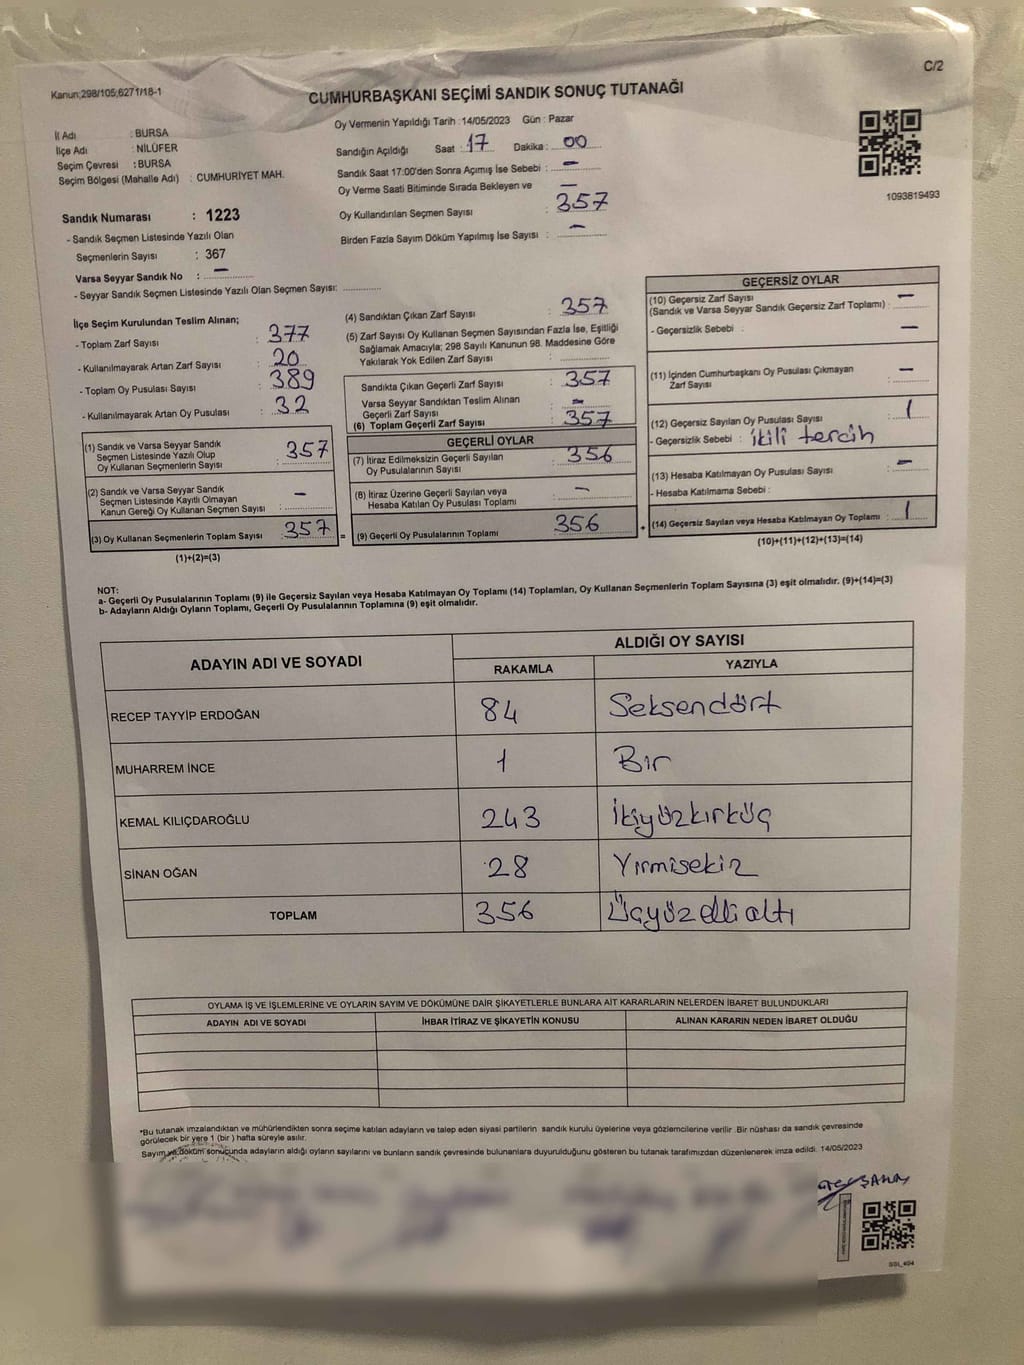 C/2
Kanun;298/105;6271/18-1
CUMHURBAŞKANI SEÇİMİ SANDIK SONUÇ TUTANAĞI
İl Adı : BURSA
İlçe Adı : NİLÜFER
Seçim Çevresi : BURSA
Seçim Bölgesi (Mahalle Adı) : CUMHURİYET MAH.
Sandık Numarası : 1223
- Sandık Seçmen Listesinde Yazılı Olan
Seçmenlerin Sayısı : 367
Varsa Seyyar Sandık No : –
- Seyyar Sandık Seçmen Listesinde Yazılı Olan Seçmen Sayısı: ..............
Oy Vermenin Yapıldığı Tarih : 14/05/2023 Gün : Pazar
Sandığın Açıldığı Saat : 17 Dakika : 00
Sandık Saat 17:00'den Sonra Açımış İse Sebebi : –
Oy Verme Saati Bitiminde Sırada Bekleyen ve –
Oy Kullandırılan Seçmen Sayısı : 357
Birden Fazla Sayım Döküm Yapılmış İse Sayısı : –
1093819493
İlçe Seçim Kurulundan Teslim Alınan;
- Toplam Zarf Sayısı : 377
- Kullanılmayarak Artan Zarf Sayısı : 20
- Toplam Oy Pusulası Sayısı : 389
- Kullanılmayarak Artan Oy Pusulası : 32
(1) Sandık ve Varsa Seyyar Sandık
Seçmen Listesinde Yazılı Olup
Oy Kullanan Seçmenlerin Sayısı : 357
(2) Sandık ve Varsa Seyyar Sandık
Seçmen Listesinde Kayıtlı Olmayan
Kanun Gereği Oy Kullanan Seçmen Sayısı : –
(3) Oy Kullanan Seçmenlerin Toplam Sayısı : 357 =
(1)+(2)=(3)
(4) Sandıktan Çıkan Zarf Sayısı : 357
(5) Zarf Sayısı Oy Kullanan Seçmen Sayısından Fazla İse, Eşitliği
Sağlamak Amacıyla; 298 Sayılı Kanunun 98. Maddesine Göre
Yakılarak Yok Edilen Zarf Sayısı : ..............
Sandıkta Çıkan Geçerli Zarf Sayısı : 357
Varsa Seyyar Sandıktan Teslim Alınan
Geçerli Zarf Sayısı : –
(6) Toplam Geçerli Zarf Sayısı : 357
GEÇERLİ OYLAR
(7) İtiraz Edilmeksizin Geçerli Sayılan
Oy Pusulalarının Sayısı : 356
(8) İtiraz Üzerine Geçerli Sayılan veya
Hesaba Katılan Oy Pusulası Toplamı : –
(9) Geçerli Oy Pusulalarının Toplamı : 356 +
GEÇERSİZ OYLAR
(10) Geçersiz Zarf Sayısı
(Sandık ve Varsa Seyyar Sandık Geçersiz Zarf Toplamı) : –
- Geçersizlik Sebebi : –
(11) İçinden Cumhurbaşkanı Oy Pusulası Çıkmayan
Zarf Sayısı : –
(12) Geçersiz Sayılan Oy Pusulası Sayısı : 1
- Geçersizlik Sebebi : ikili tercih
(13) Hesaba Katılmayan Oy Pusulası Sayısı : –
- Hesaba Katılmama Sebebi :
(14) Geçersiz Sayılan veya Hesaba Katılmayan Oy Toplamı : 1
(10)+(11)+(12)+(13)=(14)
NOT:
a- Geçerli Oy Pusulalarının Toplamı (9) ile Geçersiz Sayılan veya Hesaba Katılmayan Oy Toplamı (14) Toplamları, Oy Kullanan Seçmenlerin Toplam Sayısına (3) eşit olmalıdır. (9)+(14)=(3)
b- Adayların Aldığı Oyların Toplamı, Geçerli Oy Pusulalarının Toplamına (9) eşit olmalıdır.
ADAYIN ADI VE SOYADI
ALDIĞI OY SAYISI
RAKAMLA YAZIYLA
RECEP TAYYİP ERDOĞAN 84 Seksendört
MUHARREM İNCE 1 Bir
KEMAL KILIÇDAROĞLU 243 İkiyüzkırküç
SİNAN OĞAN 28 Yirmisekiz
TOPLAM 356 Üçyüzelli altı
OYLAMA İŞ VE İŞLEMLERİNE VE OYLARIN SAYIM VE DÖKÜMÜNE DAİR ŞİKAYETLERLE BUNLARA AİT KARARLARIN NELERDEN İBARET BULUNDUKLARI
ADAYIN ADI VE SOYADI İHBAR İTİRAZ VE ŞİKAYETİN KONUSU ALINAN KARARIN NEDEN İBARET OLDUĞU
*Bu tutanak imzalandıktan ve mühürlendikten sonra seçime katılan adayların ve talep eden siyasi partilerin sandık kurulu üyelerine veya gözlemcilerine verilir .Bir nüshası da sandık çevresinde
görülecek bir yere 1 (bir ) hafta süreyle asılır.
Sayım ve döküm sonucunda adayların aldığı oyların sayılarını ve bunların sandık çevresinde bulunanlara duyurulduğunu gösteren bu tutanak tarafımızdan düzenlenerek imza edildi. 14/05/2023